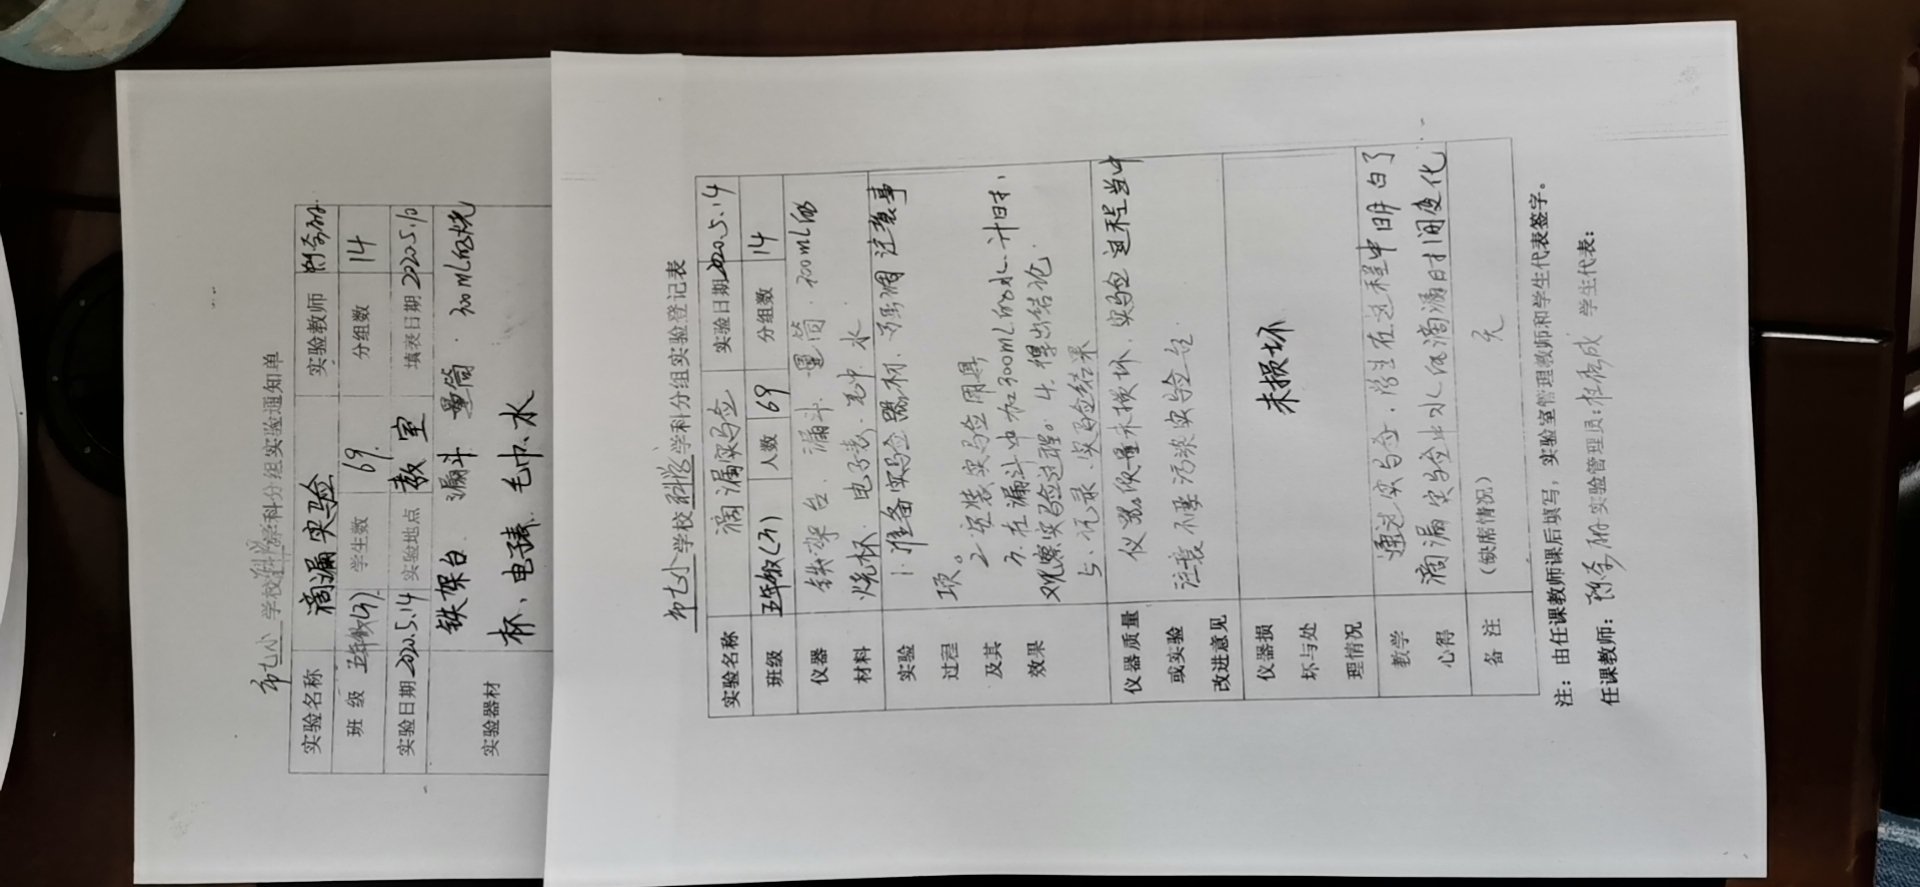 市七小学校科学学科分组实验通知单
实验名称 滴漏实验 实验教师
班级 五年级(3) 学生数 69 分组数 14
实验日期 2020.5.14 实验地点 教室 填表日期 2020.5.10
实验器材 铁架台 漏斗 量筒 300mL的烧
杯、电子表 毛巾、水
市七小学校科学学科分组实验登记表
实验名称 滴漏实验 实验日期 2020.5.14
班级 五年级(3) 人数 69 分组数 14
仪器 铁架台、漏斗、量筒、300mL的
材料 烧杯、电子表、毛巾、水
实验 1.准备实验器材、强调注意事
过程 项。
及其 2.安装实验用具
效果 3.在漏斗中加300mL的水、计时、
观察实验过程。4.得出结论.
5、记录、实验结果
仪器质量 仪器质量未损坏.实验过程当中
或实验 注意不要污染实验台.
改进意见
仪器损
坏与处 未损坏
理情况
教学 通过实验.学生在这过程中明白了
心得 滴漏实验中水的滴漏时间变化
备注 (缺席情况) 无
注：由任课教师课后填写，实验室管理教师和学生代表签字。
任课教师： 实验管理员： 学生代表：